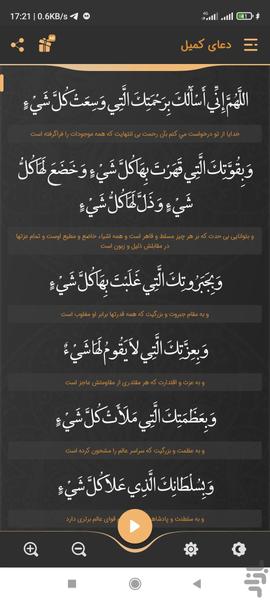 17:21 | 0.6KB/s
دعای کمیل
اللَّهُمَّ إِنِّي أَسْأَلُكَ بِرَحْمَتِكَ الَّتِي وَسِعَتْ كُلَّ شَيْءٍ
خدایا از تو درخواست می کنم بآن رحمت بی انتهایت که همه موجودات را فراگرفته است
وَ بِقُوَّتِكَ الَّتِي قَهَرْتَ بِهَا كُلَّ شَيْءٍ وَ خَضَعَ لَهَا كُلُّ
شَيْءٍ وَ ذَلَّ لَهَا كُلُّ شَيْءٍ
و بتوانایی بی حدت که بر هر چیز مسلط و قاهر است و همه اشیاء خاضع و مطیع اوست و تمام عزتها
در مقابلش ذلیل و زبون است
وَ بِجَبَرُوتِكَ الَّتِي غَلَبْتَ بِهَا كُلَّ شَيْءٍ
و به مقام جبروت و بزرگیت که همه قدرتها برابر او مغلوب است
وَ بِعِزَّتِكَ الَّتِي لا يَقُومُ لَهَا شَيْءٌ
و به عزت و اقتدارت که هر مقتدری از مقاومتش عاجز است
وَ بِعَظَمَتِكَ الَّتِي مَلَأَتْ كُلَّ شَيْءٍ
و به عظمت و بزرگیت که سراسر عالم را مشحون کرده است
وَ بِسُلْطَانِكَ الَّذِي عَلا كُلَّ شَيْءٍ
و به سلطنت و پادشاه قوای عالم برتری دارد
بازار